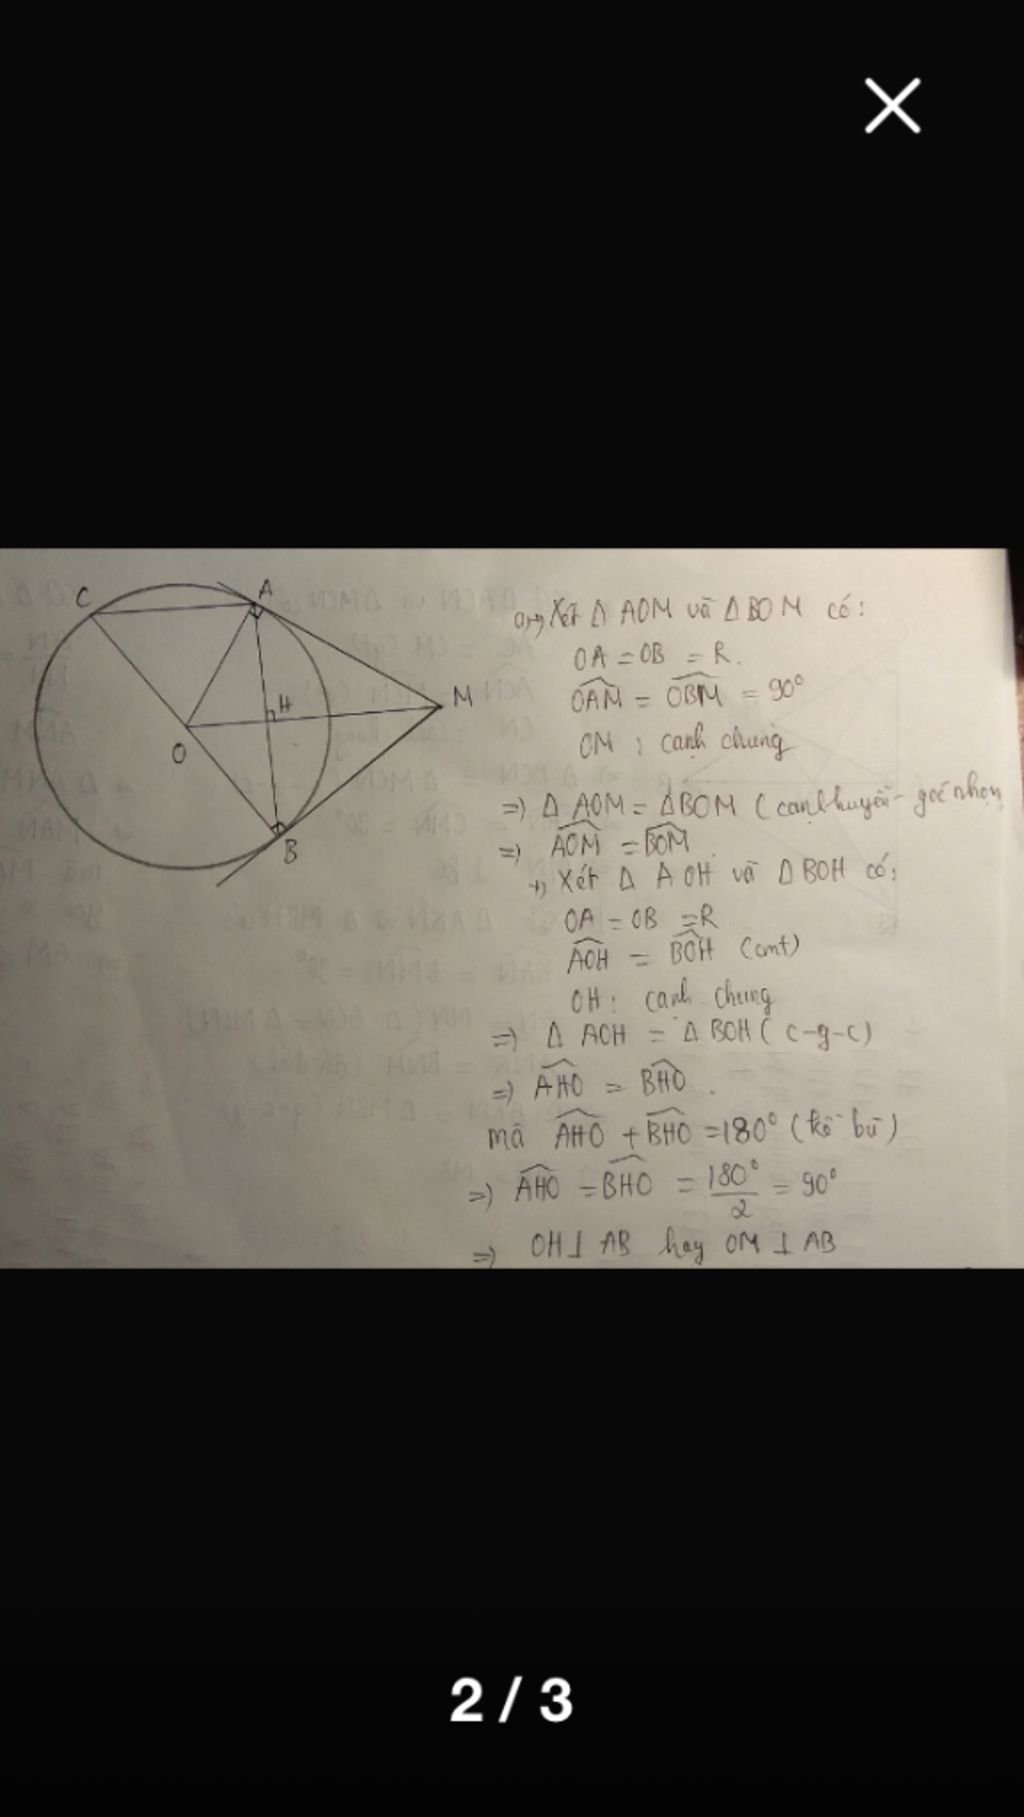 C
A
M
H
O
B
a, +, Xét Δ AOM và Δ BOM có:
OA = OB = R.
OAM = OBM = 90°
OM : cạnh chung
=) Δ AOM = Δ BOM ( cạnh huyền - góc nhọn
=) AOM = BOM
+, Xét Δ AOH và Δ BOH có:
OA = OB = R
AOH = BOH (cmt)
OH: cạnh chung
=) Δ AOH = Δ BOH ( c-g-c)
=) AHO = BHO .
mà AHO + BHO = 180° ( kề bù )
=) AHO = BHO = 180°/2 = 90°
=) OH ⊥ AB hay OM ⊥ AB
2 / 3